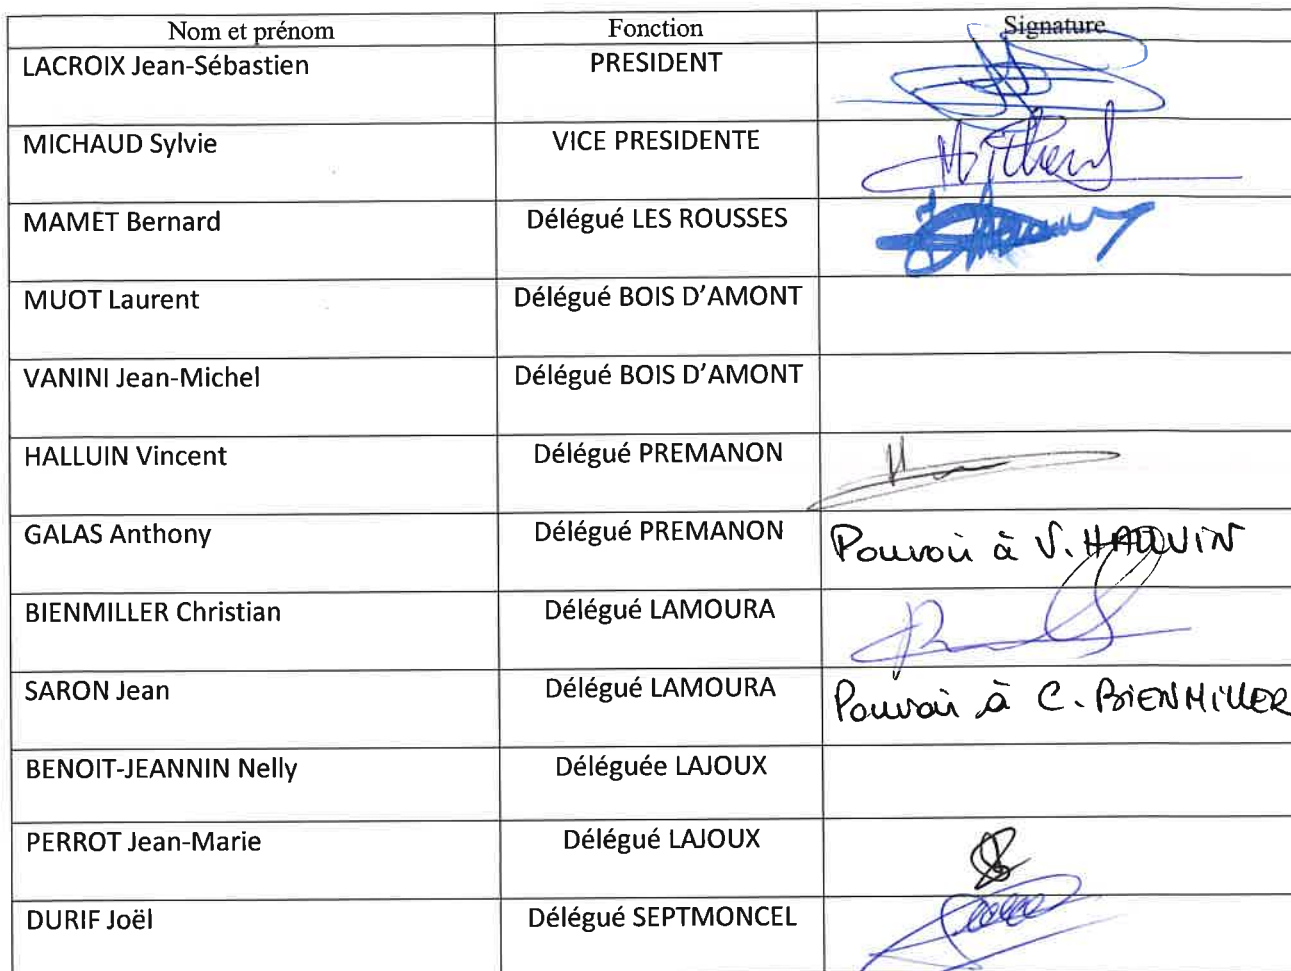 Nom et prénom Fonction Signature
LACROIX Jean-Sébastien PRESIDENT
MICHAUD Sylvie VICE PRESIDENTE
MAMET Bernard Délégué LES ROUSSES
MUOT Laurent Délégué BOIS D'AMONT
VANINI Jean-Michel Délégué BOIS D'AMONT
HALLUIN Vincent Délégué PREMANON
GALAS Anthony Délégué PREMANON Pouvoir à V. HALLUIN
BIENMILLER Christian Délégué LAMOURA
SARON Jean Délégué LAMOURA Pouvoir à C. BIENMILLER
BENOIT-JEANNIN Nelly Déléguée LAJOUX
PERROT Jean-Marie Délégué LAJOUX
DURIF Joël Délégué SEPTMONCEL